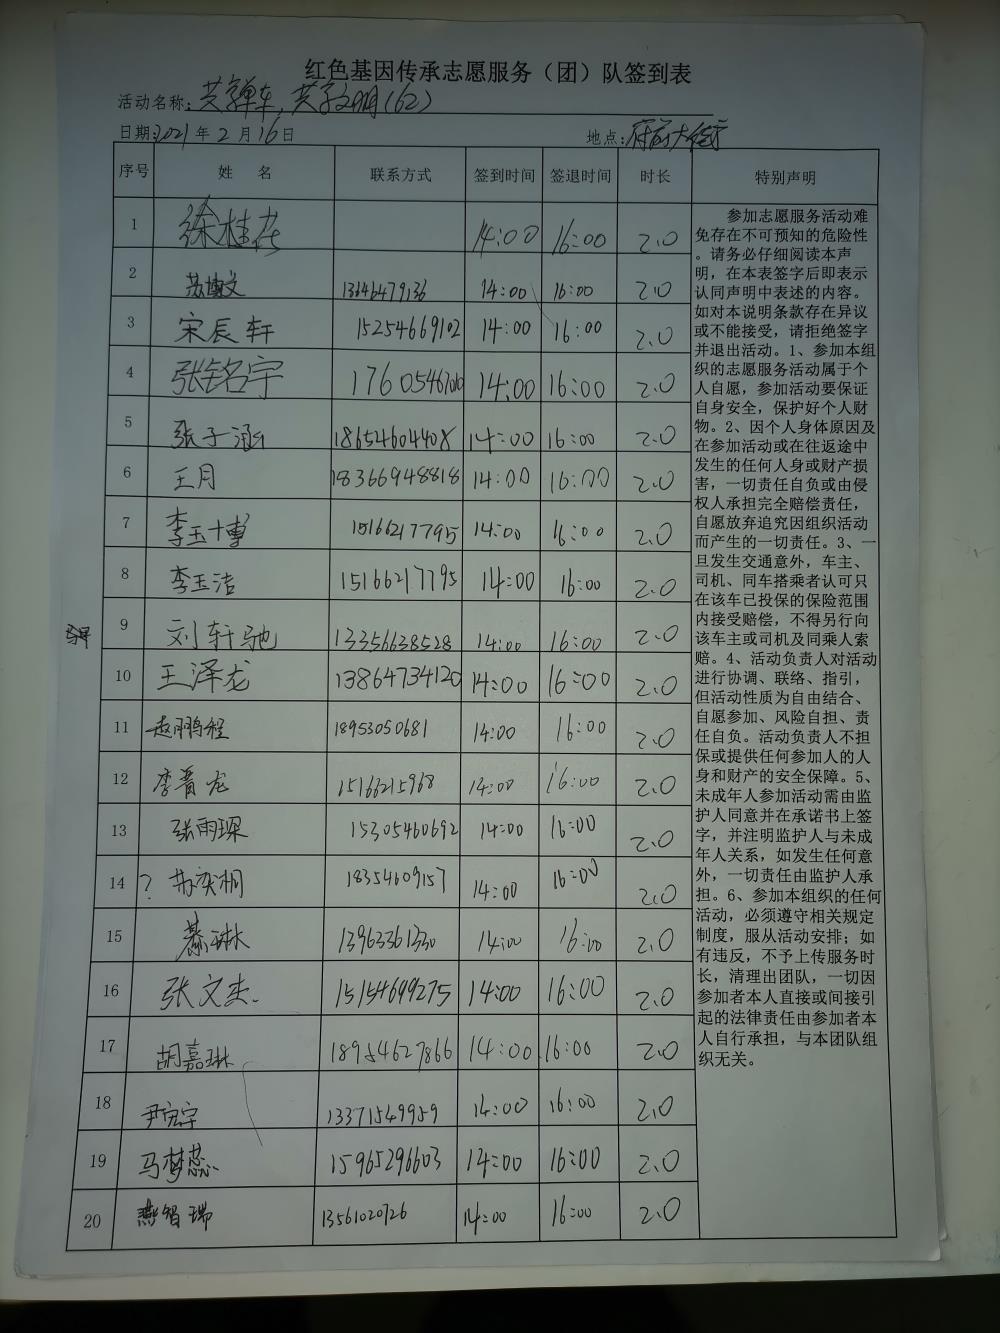 红色基因传承志愿服务（团）队签到表
活动名称：共享单车，共享文明（62）
日期：2021年2月16日 地点：府前大街
序号 姓 名 联系方式 签到时间 签退时间 时长 特别声明
1 徐桂花 14:00 16:00 2.0
2 苏博文 13646479136 14:00 16:00 2.0
3 宋辰轩 15254669102 14:00 16:00 2.0
4 张铭宇 14:00 16:00 2.0
5 张子涵 18654604408 14:00 16:00 2.0
6 王月 18366948818 14:00 16:00 2.0
7 李玉博 15166217795 14:00 16:00 2.0
8 李玉洁 15166217795 14:00 16:00 2.0
9 刘轩驰 13356638528 14:00 16:00 2.0
10 王泽龙 13864734120 14:00 16:00 2.0
11 赵鹏程 18953050681 14:00 16:00 2.0
12 李晋龙 15166215968 14:00 16:00 2.0
13 张雨琛 15305460692 14:00 16:00 2.0
14 ? 苏奕桐 18354609157 14:00 16:00 2.0
15 綦琳 13963361330 14:00 16:00 2.0
16 张文杰 15154699275 14:00 16:00 2.0
17 胡嘉琳 18954627866 14:00 16:00 2.0
18 尹宏宇 13371549959 14:00 16:00 2.0
19 马梦蕊 15965296603 14:00 16:00 2.0
20 燕智瑞 13561020726 14:00 16:00 2.0
参加志愿服务活动难
免存在不可预知的危险性
。请务必仔细阅读本声
明，在本表签字后即表示
认同声明中表述的内容。
如对本说明条款存在异议
或不能接受，请拒绝签字
并退出活动。1、参加本组
织的志愿服务活动属于个
人自愿，参加活动要保证
自身安全，保护好个人财
物。2、因个人身体原因及
在参加活动或在往返途中
发生的任何人身或财产损
害，一切责任自负或由侵
权人承担完全赔偿责任，
自愿放弃追究因组织活动
而产生的一切责任。3、一
旦发生交通意外，车主、
司机、同车搭乘者认可只
在该车已投保的保险范围
内接受赔偿，不得另行向
该车主或司机及同乘人索
赔。4、活动负责人对活动
进行协调、联络、指引，
但活动性质为自由结合、
自愿参加、风险自担、责
任自负。活动负责人不担
保或提供任何参加人的人
身和财产的安全保障。5、
未成年人参加活动需由监
护人同意并在承诺书上签
字，并注明监护人与未成
年人关系，如发生任何意
外，一切责任由监护人承
担。6、参加本组织的任何
活动，必须遵守相关规定
制度，服从活动安排；如
有违反，不予上传服务时
长，清理出团队，一切因
参加者本人直接或间接引
起的法律责任由参加者本
人自行承担，与本团队组
织无关。